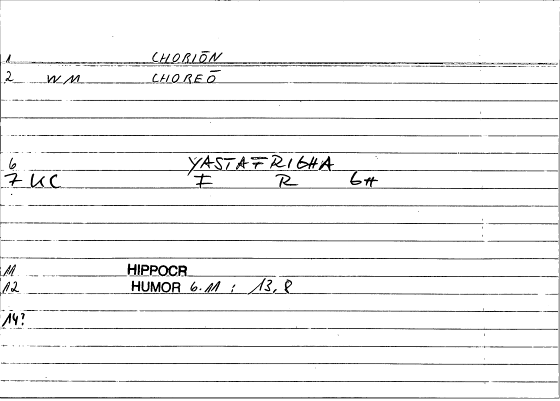 1 CHORIŌN
2 WM CHOREŌ
6 YASTAFRIGHA
7 KC I R GH
11 HIPPOCR
12 HUMOR 6.11 : 13,8
14?